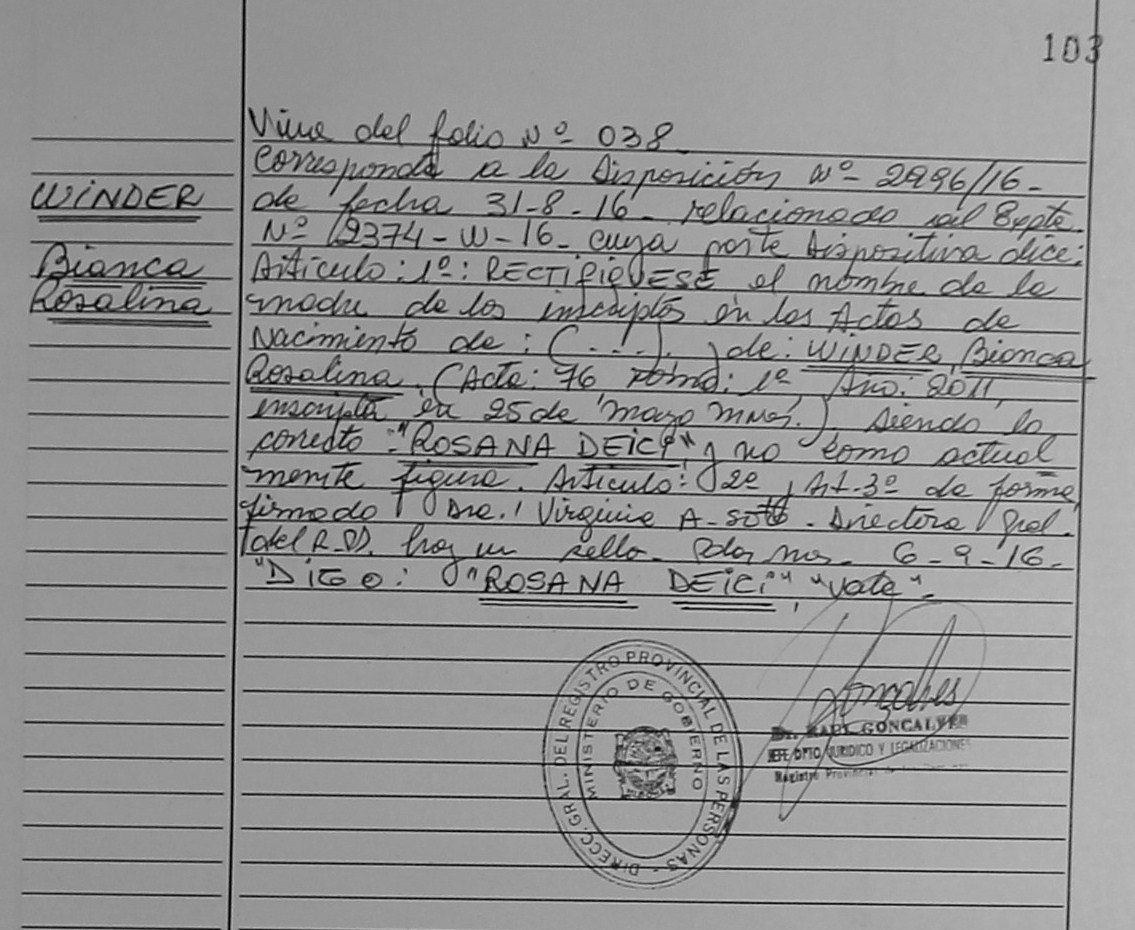 103
Viene del folio Nº 038_
Corresponde a la Disposición Nº 2996/16_
WINDER
de fecha 31-8-16_ relacionado al Expte.
Nº 12374-W-16_ cuya parte dispositiva dice:
Bianca
Artículo: 1º: RECTIFIQUESE el nombre de la
Rosalina
madre de los inscriptos en las Actas de
Nacimiento de: (...), de: WINDER, Bianca
Rosalina. (Acta: 76 Tomo: 1º, Año: 2011,
inscripta en 25 de Mayo Mnes.). Siendo lo
correcto: "ROSANA DEICI" y no como actual
mente figura. Artículo: 2º, Art. 3º de forma
firmado Dra. Virginia A. Soto. Directora Gral.
del R.P. hay un sello. Pdas Mnes. 6-9-16_
"DIGO: "ROSANA DEICI" "Vale"_
DIRECC. GRAL. DEL REGISTRO PROVINCIAL DE LAS PERSONAS
MINISTERIO DE GOBIERNO
GONCALVES
JEFE DPTO JURIDICO Y LEGALIZACIONES
Registro Provincial